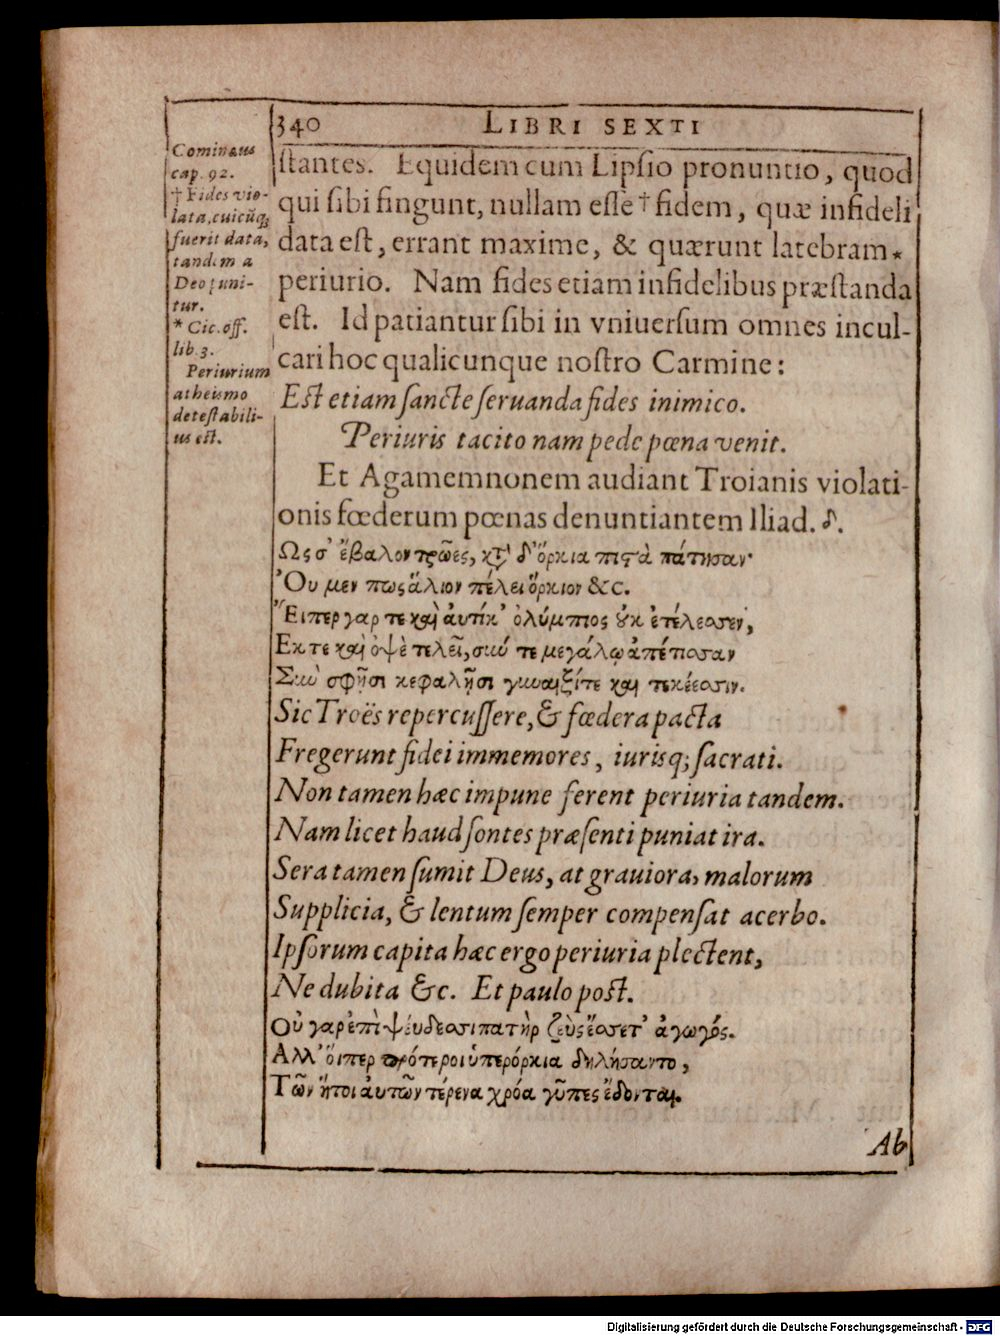 340 LIBRI SEXTI
Comineus
cap. 92.
† Fides vio-
lata, cuicũq;
fuerit data,
tandem a
Deo puni-
tur.
* Cic. off.
lib. 3.
Periurium
atheismo
detestabili-
us est.
ſtantes. Equidem cum Lipſio pronuntio, quod
qui ſibi fingunt, nullam eſſe † fidem, quæ infideli
data eſt, errant maxime, & quærunt latebram *
periurio. Nam fides etiam infidelibus præſtanda
eſt. Id patiantur ſibi in vniuerſum omnes incul-
cari hoc qualicunque noſtro Carmine:
Eſt etiam ſancte ſeruanda fides inimico.
Periuris tacito nam pede pœna venit.
Et Agamemnonem audiant Troianis violati-
onis fœderum pœnas denuntiantem Iliad. δ.
Ως σ' ἔβαλον τρῶες, κτ' δ' ὅρκια πιςὰ πάτησαν·
Ὀυ μεν πως ἅλιον πέλει ὅρκιον &c.
Ἔιπερ γαρ τε καὶ ἀυτίκ' ὀλύμπιος ȣκ ἐτέλεσεν,
Εκ τε καὶ ὀψὲ τελεῖ, σιώ τε μεγάλῳ ἀπέτισαν
Σιὼ σφῇσι κεφαλῇσι γιωαιξίτε καὶ τεκέεσιν.
Sic Troës repercuſſere, & fœdera pacta
Fregerunt fidei immemores, iurisq; ſacrati.
Non tamen hæc impune ferent periuria tandem.
Nam licet haud ſontes præſenti puniat ira.
Sera tamen ſumit Deus, at grauiora, malorum
Supplicia, & lentum ſemper compenſat acerbo.
Ipſorum capita hæc ergo periuria plectent,
Ne dubita &c. Et paulo poſt.
Οὐ γαρ ἐπὶ ψέυδεσι πατὴρ ζεὺς ἔσετ' ἀγωγός.
Αλλ' ὅιπερ πρότεροι ὑπερόρκια δηλήσαντο,
Τῶν ἤτοι ἀυτῶν τέρενα χρόα γῦπες ἔδονται.
Ab
Digitalisierung gefördert durch die Deutsche Forschungsgemeinschaft - DFG